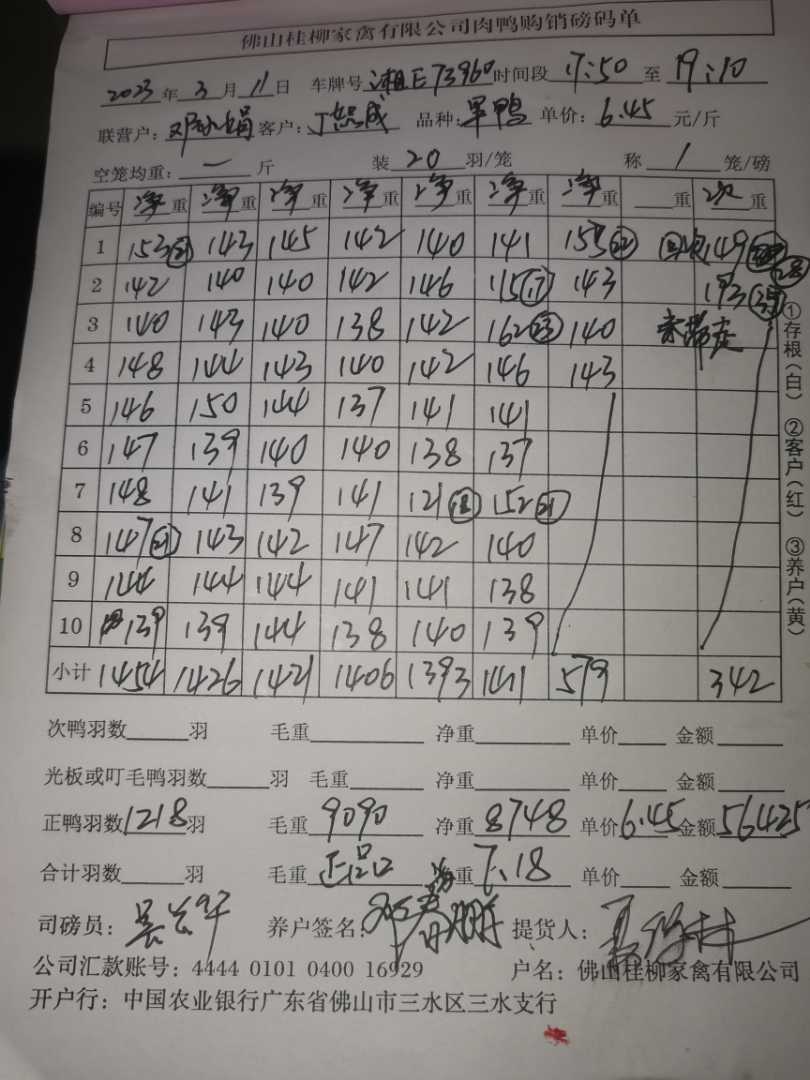 佛山桂柳家禽有限公司肉鸭购销磅码单
2023年3月11日 车牌号湘E73960时间段17:50至19:10
联营户: 客户: 品种:单鸭 单价:6.45元/斤
空笼均重:一斤 装20羽/笼 称1笼/磅
编号 净重 净重 净重 净重 净重 净重 净重 重 次重
1 153㉑ 143 145 142 140 141 155㉒ 149
2 142 140 140 142 146 115⑰ 143 193
3 140 143 140 138 142 162㉓ 140
4 148 144 143 140 142 146 143
5 146 150 144 137 141 141
6 147 139 140 140 138 137
7 148 141 139 141 121⑱ 152㉑
8 147㉑ 143 142 147 142 140
9 144 144 144 141 141 138
10 139 139 144 138 140 139
小计 1454 1426 1421 1406 1393 1411 579 342
次鸭羽数 羽 毛重 净重 单价 金额
光板或叮毛鸭羽数 羽 毛重 净重 单价 金额
正鸭羽数1218羽 毛重9090 净重8748 单价6.45 金额56425
合计羽数 羽 毛重正品 净重7.18 单价 金额
司磅员: 养户签名: 提货人:
公司汇款账号:4444 0101 0400 16929 户名:佛山桂柳家禽有限公司
开户行:中国农业银行广东省佛山市三水区三水支行
①存根(白) ②客户(红) ③养户(黄)